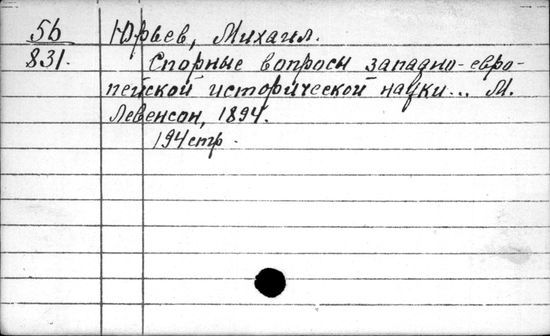 56 Юрьев, Михаил.
831. Спорные вопросы западно-евро-
пейской исторической науки... М.
Левенсон, 1894.
194 стр.